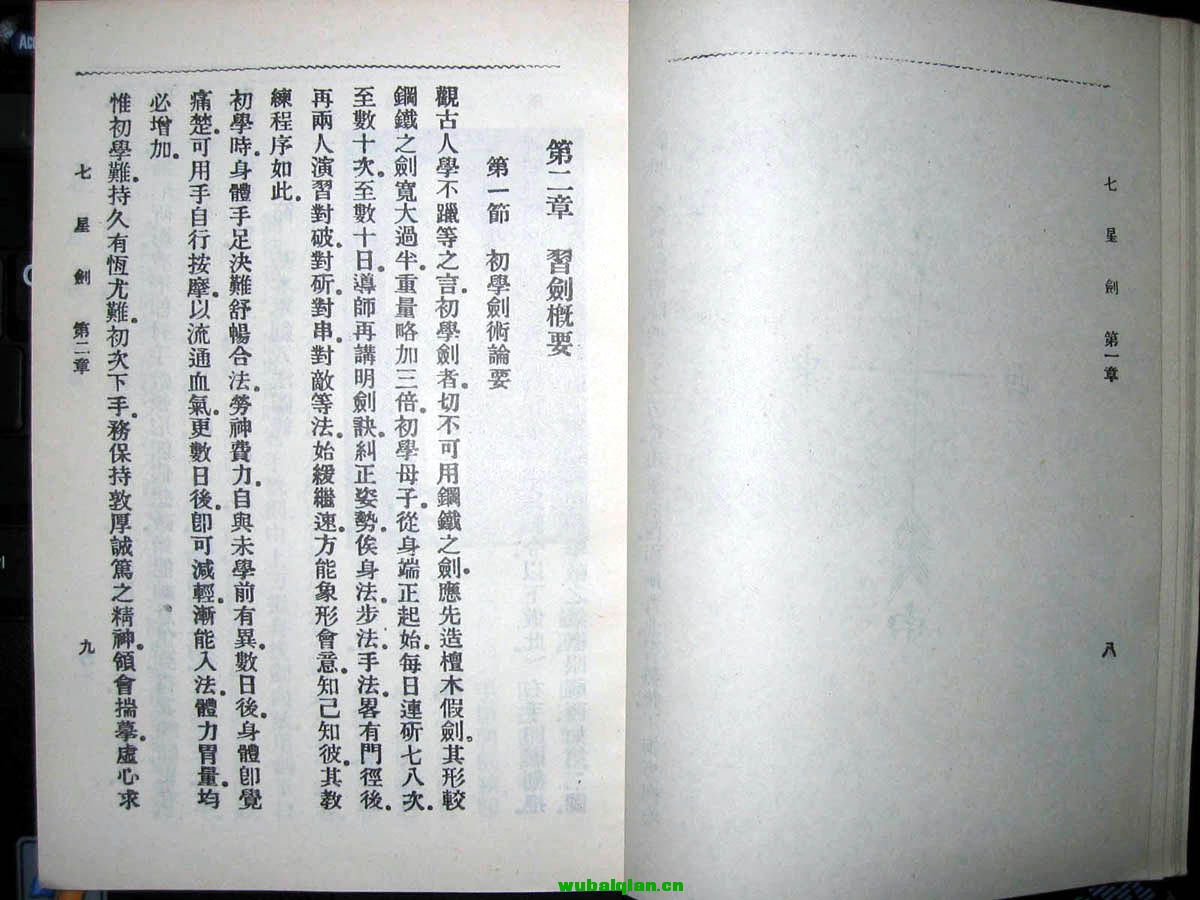 七星劍 第一章
八
第二章 習劍槪要
第一節 初學劍術論要
觀古人學不躐等之言。初學劍者。切不可用鋼鐵之劍。應先造檀木假劍。其形較
鋼鐵之劍寬大過半。重量略加三倍。初學母子。從身端正起始。每日連斫七八次。
至數十次。至數十日。導師再講明劍訣。糾正姿勢。俟身法步法。手法畧有門徑後。
再兩人演習對破。對斫。對串。對敵等法。始緩繼速。方能象形會意。知己知彼。其教
練程序如此。
初學時。身體手足決難舒暢合法。勞神費力。自與未學前有異。數日後。身體卽覺
痛楚。可用手自行按摩。以流通血氣。更數日後。卽可減輕。漸能入法。體力胃量。均
必增加。
惟初學難。持久有恆尤難。初次下手。務保持敦厚誠篤之精神。領會揣摹。虛心求
七星劍 第二章
九
wubaiqian.cn